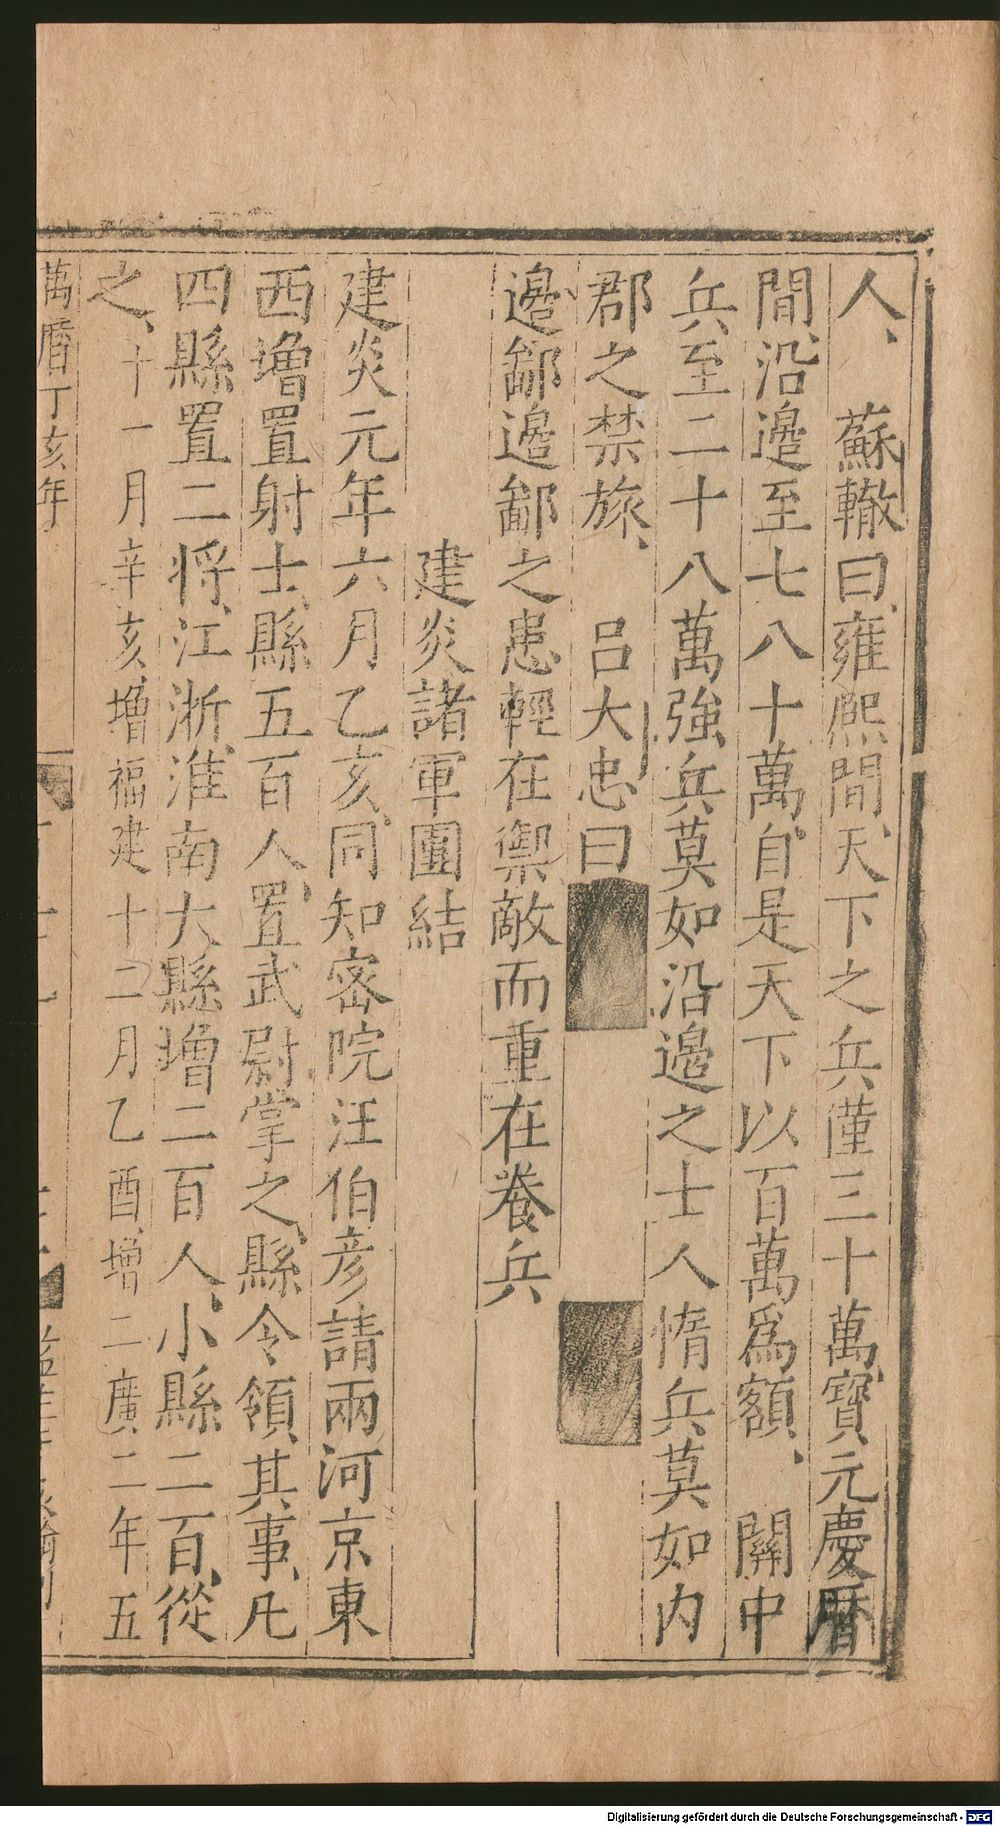 人、蘇轍曰、雍熙間、天下之兵僅三十萬、寶元慶曆
間、沿邊至七八十萬、自是天下以百萬爲額、關中
兵至二十八萬強、兵莫如沿邊之士人惰兵莫如内
郡之禁旅、呂大忠曰
邊鄙邊鄙之患輕在禦敵而重在養兵
建炎諸軍團結
建炎元年六月乙亥、同知密院汪伯彦請兩河京東
西增置射士、縣五百人、置武尉掌之、縣令領其事、凡
四縣置二將、江浙淮南大縣增二百人、小縣二百、從
之、十一月辛亥、增福建十二月乙酉、增二廣二年五
萬曆丁亥年
Digitalisierung gefördert durch die Deutsche Forschungsgemeinschaft - DFG